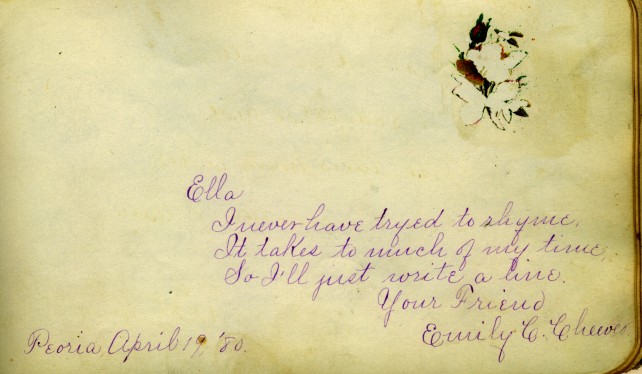 Ella
I never have tryed to rhyme,
It takes to much of my time,
So I'll just write a line.
Your Friend
Emily C.
Peoria, April 19, '80.